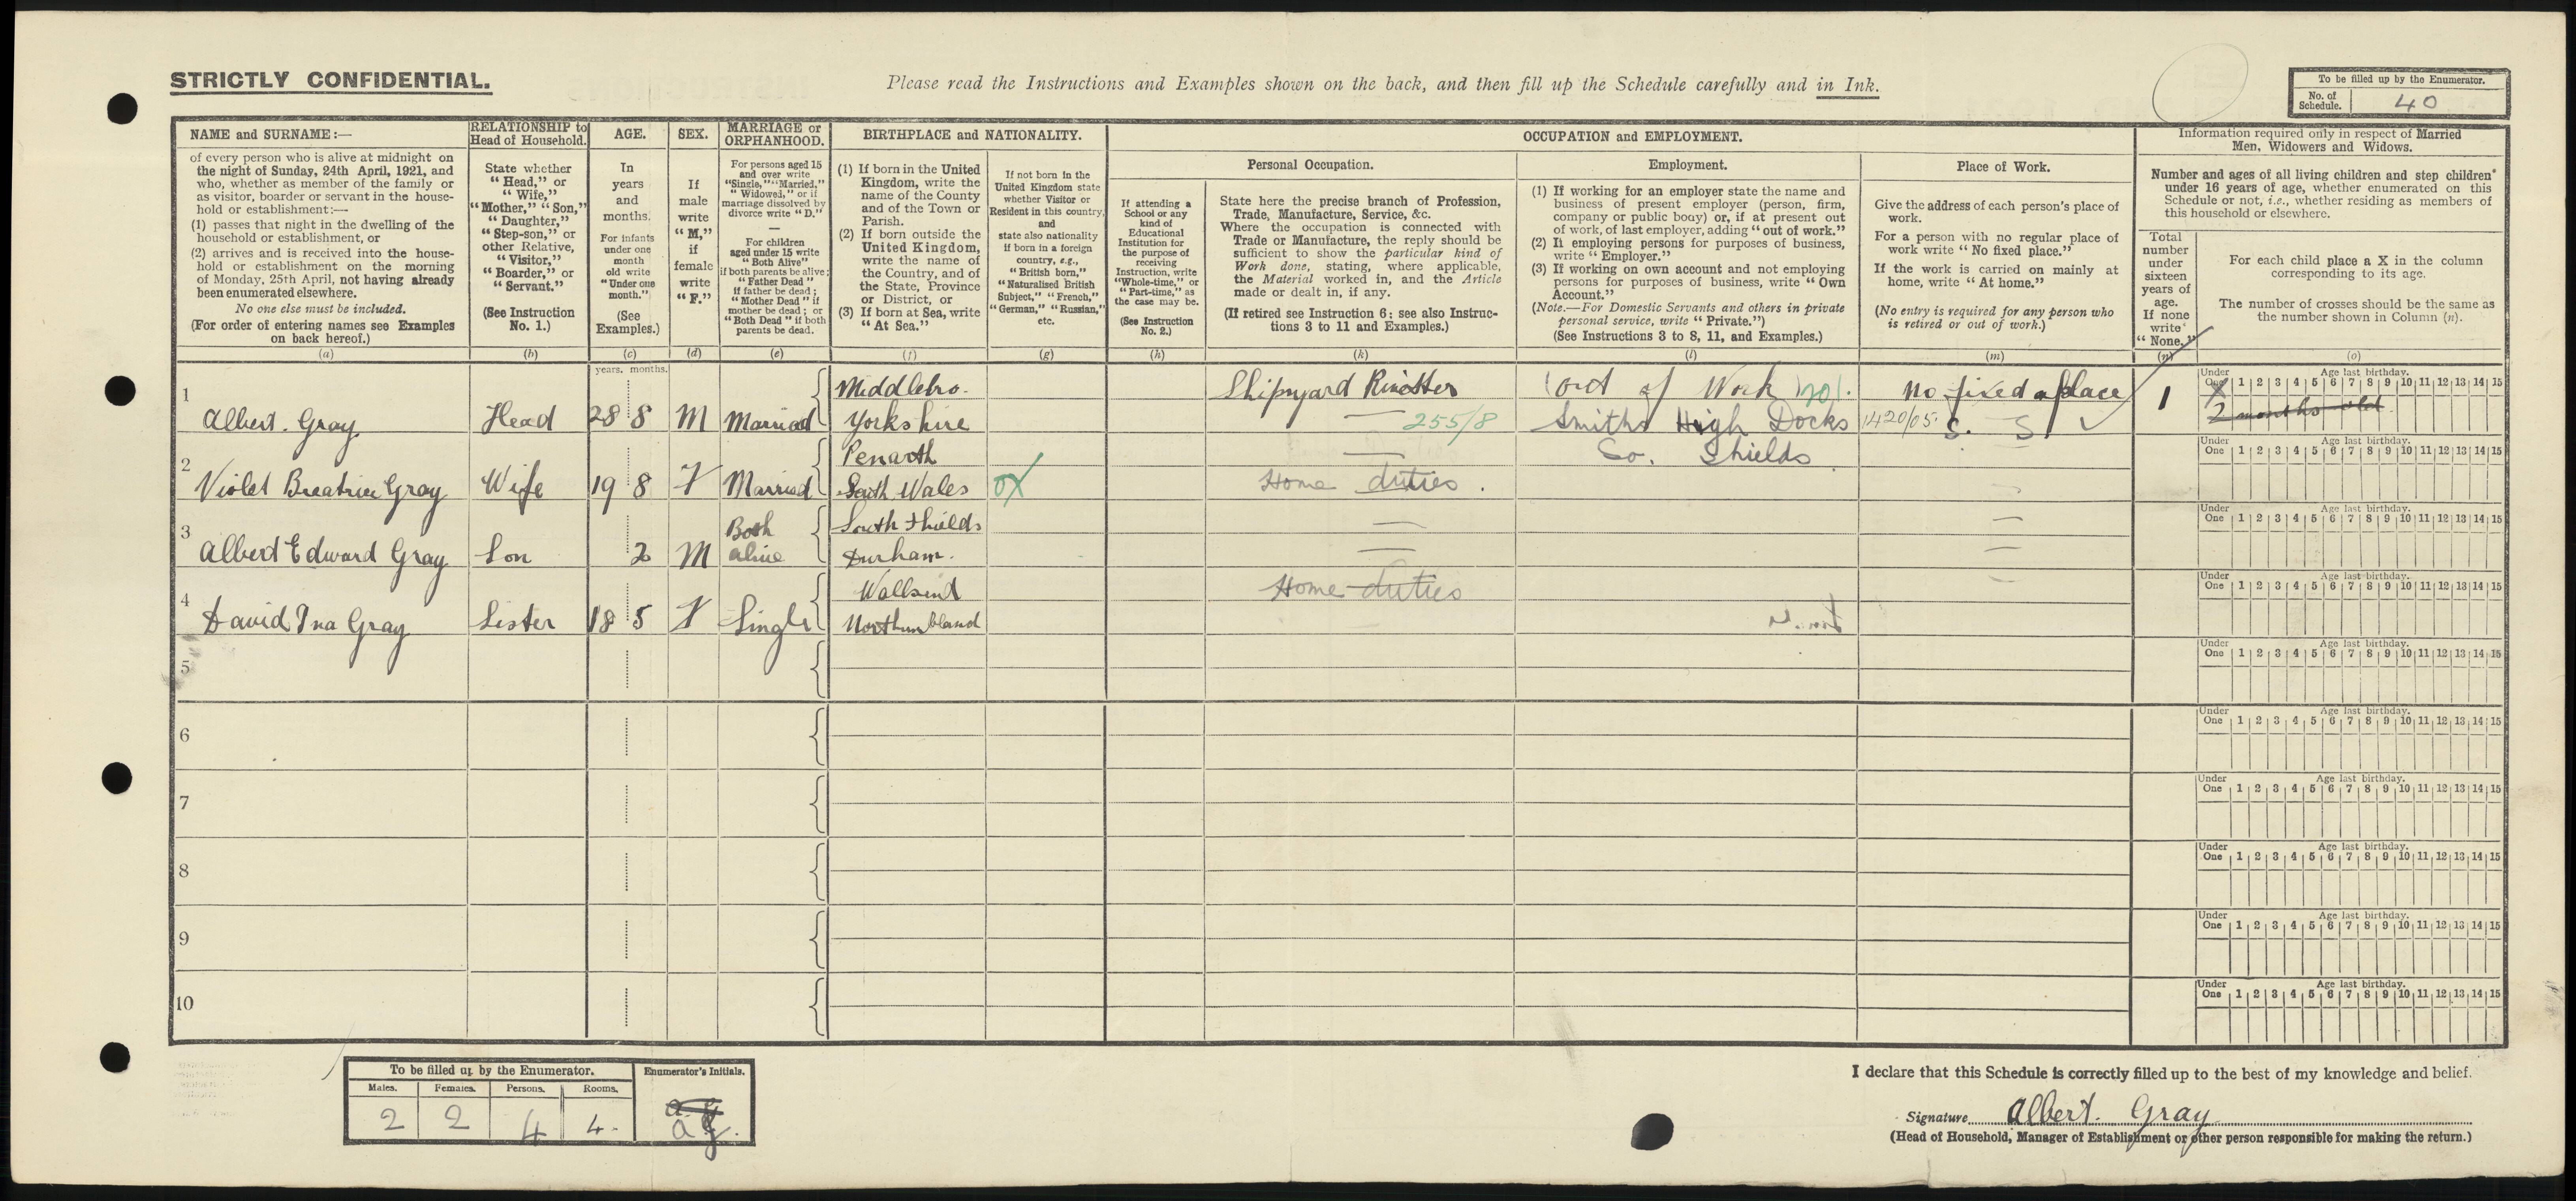 STRICTLY CONFIDENTIAL.
Please read the Instructions and Examples shown on the back, and then fill up the Schedule carefully and in Ink.
To be filled up by the Enumerator.
No. of Schedule. 40
NAME and SURNAME:—
of every person who is alive at midnight on
the night of Sunday, 24th April, 1921, and
who, whether as member of the family or
as visitor, boarder or servant in the house-
hold or establishment:—
(1) passes that night in the dwelling of the
household or establishment, or
(2) arrives and is received into the house-
hold or establishment on the morning
of Monday, 25th April, not having already
been enumerated elsewhere.
No one else must be included.
(For order of entering names see Examples
on back hereof.)
(a)
RELATIONSHIP to
Head of Household.
State whether
"Head," or
"Wife,"
"Mother," "Son,"
"Daughter,"
"Step-son," or
other Relative,
"Visitor,"
"Boarder," or
"Servant."
(See Instruction
No. 1.)
(b)
AGE.
In
years
and
months.
For infants
under one
month
old write
"Under one
month."
(See
Examples.)
(c)
SEX.
If
male
write
"M,"
if
female
write
"F."
(d)
MARRIAGE or
ORPHANHOOD.
For persons aged 15
and over write
"Single," "Married,"
"Widowed," or if
marriage dissolved by
divorce write "D."
—
For children
aged under 15 write
"Both Alive"
if both parents be alive;
"Father Dead"
if father be dead;
"Mother Dead" if
mother be dead; or
"Both Dead" if both
parents be dead.
(e)
BIRTHPLACE and NATIONALITY.
(1) If born in the United
Kingdom, write the
name of the County
and of the Town or
Parish.
(2) If born outside the
United Kingdom,
write the name of
the Country, and of
the State, Province
or District, or
(3) If born at Sea, write
"At Sea."
(f)
If not born in the
United Kingdom state
whether Visitor or
Resident in this country,
and
state also nationality
if born in a foreign
country, e.g.,
"British born,"
"Naturalised British
Subject," "French,"
"German," "Russian,"
etc.
(g)
OCCUPATION and EMPLOYMENT.
Personal Occupation.
If attending a
School or any
kind of
Educational
Institution for
the purpose of
receiving
Instruction, write
"Whole-time," or
"Part-time," as
the case may be.
(See Instruction
No. 2.)
(h)
State here the precise branch of Profession,
Trade, Manufacture, Service, &c.
Where the occupation is connected with
Trade or Manufacture, the reply should be
sufficient to show the particular kind of
Work done, stating, where applicable,
the Material worked in, and the Article
made or dealt in, if any.
(If retired see Instruction 6: see also Instruc-
tions 3 to 11 and Examples.)
(k)
Employment.
(1) If working for an employer state the name and
business of present employer (person, firm,
company or public body) or, if at present out
of work, of last employer, adding "out of work."
(2) If employing persons for purposes of business,
write "Employer."
(3) If working on own account and not employing
persons for purposes of business, write "Own
Account."
(Note.—For Domestic Servants and others in private
personal service, write "Private.")
(See Instructions 3 to 8, 11, and Examples.)
(l)
Place of Work.
Give the address of each person's place of
work.
For a person with no regular place of
work write "No fixed place."
If the work is carried on mainly at
home, write "At home."
(No entry is required for any person who
is retired or out of work.)
(m)
Information required only in respect of Married
Men, Widowers and Widows.
Number and ages of all living children and step children
under 16 years of age, whether enumerated on this
Schedule or not, i.e., whether residing as members of
this household or elsewhere.
Total
number
under
sixteen
years of
age.
If none
write
"None."
(n)
For each child place a X in the column
corresponding to its age.
The number of crosses should be the same as
the number shown in Column (n).
(o)
years. months.
Under One Age last birthday. 1 2 3 4 5 6 7 8 9 10 11 12 13 14 15
1 Middlebro. Shipyard Out of Work No fixed place 1 X
Albert Gray Head 28 8 M Married Yorkshire 255/8 Smiths High Docks 2 months old
2 Penarth So. Shields
Violet Beatrice Gray Wife 19 8 F Married South Wales OX Home duties.
3 Both South Shields
Albert Edward Gray Son 2 M alive Durham.
4 Wallsend Home duties
David Ina Gray Sister 18 5 F Single Northumbland
5
6
7
8
9
10
To be filled up by the Enumerator.
Males. Females. Persons. Rooms.
2 2 4 4
Enumerator's Initials.
I declare that this Schedule is correctly filled up to the best of my knowledge and belief.
Signature Albert Gray
(Head of Household, Manager of Establishment or other person responsible for making the return.)